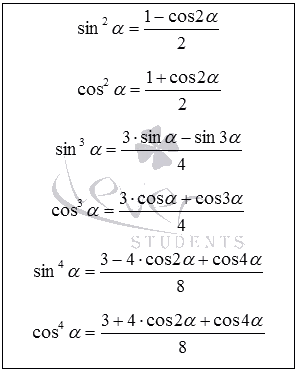 sin² α = (1 − cos2α)/2
cos² α = (1 + cos2α)/2
sin³ α = (3 · sin α − sin 3α)/4
cos³ α = (3 · cosα + cos3α)/4
sin⁴ α = (3 − 4 · cos2α + cos4α)/8
cos⁴ α = (3 + 4 · cos2α + cos4α)/8
STUDENTS